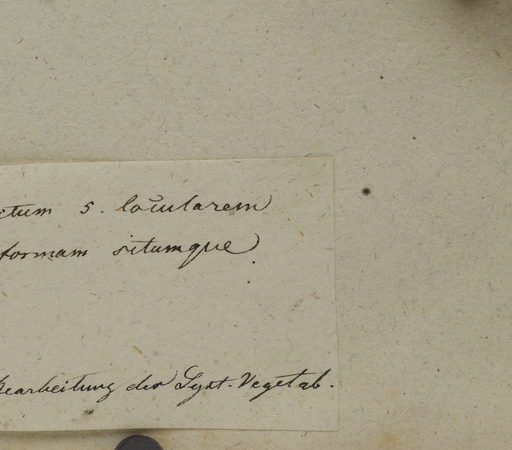 ctum 5. locularem
formam situmque
Bearbeitung des Syst. Vegetab.